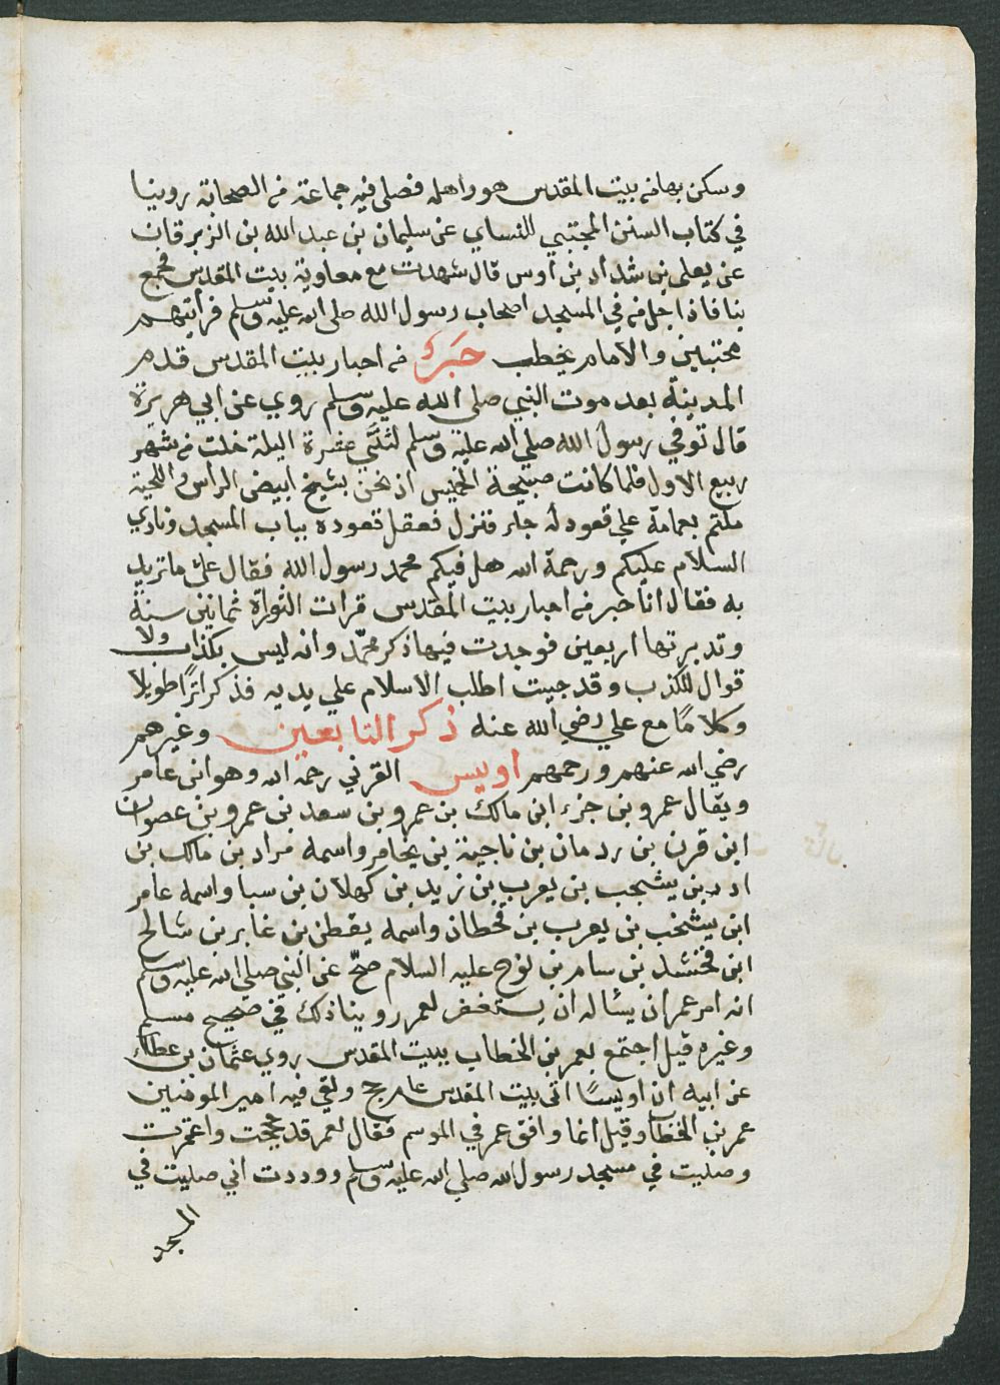 وسكن بها من بيت المقدس هو واهله فصلى فيه جماعة من الصحابة روينا
في كتاب السنن المجتبي للنساي عن سليمان بن عبد الله بن الزبرقان
عن يعلى بن شداد بن اوس قال شهدت مع معاوية بيت المقدس فجمع
بنا فاذا جل من في المسجد اصحاب رسول الله صلى الله عليه وسلم فرايتهم
محتبين والامام يخطب حَبرٌ من احبار بيت المقدس قدم
المدينة بعد موت النبي صلى الله عليه وسلم روي عن ابي هريرة
قال توفي رسول الله صلي الله عليه وسلم لثنتي عشرة ليلة خلت من شهر
ربيع الاول فلما كانت صبيحة الخميس اذ نحن بشيخ ابيض الراس واللحية
ملتم بعمامة علي قعود له جاء فنزل فعقل قعوده بباب المسجد ونادي
السلام عليكم ورحمة الله هل فيكم محمد رسول الله فقال علي ما تريد
به فقال انا حبر من احبار بيت المقدس قرات التوراة ثمانين سنة
وتدبرتها اربعين فوجدت فيها ذكر محمّد وانه ليس بكذاب ولا
قوال للكذب وقد جيت اطلب الاسلام علي يديه فذكر اثرًا طويلا
وكلامًا مع علي رضي الله عنه ذكر التابعين وغيرهم
رضي الله عنهم ورحمهم اويس القرني رحمه الله وهو ابن عامر
ويقال عمرو بن جزء ابن مالك بن عمرو بن سعد بن عمرو بن عصوان
ابن قرن بن ردمان بن ناجية بن يخامر واسمه مراد بن مالك بن
ادد بن يشجب بن يعرب بن زيد بن كهلان بن سبا واسمه عامر
ابن يشجب بن يعرب بن قحطان واسمه يقطن بن عابر بن شالح
ابن فخشد بن سام بن نوح عليه السلام صحّ عن النبي صلي الله عليه وسلم
انه امر عمر ان يساله ان يستغفر لعمر روينا ذلك في صحيح مسلم
وغيره قيل اجتمع بعمر بن الخطاب ببيت المقدس روي عثمان بن عطاء
عن ابيه ان اويسًا اتى بيت المقدس عام حج ولقي فيه امير المومنين
عمر بن الخطاب وقيل انما وافق عمر في الموسم فقال لعمر قد حججت واعتمرت
وصليت في مسجد رسول الله صلي الله عليه وسلم ووددت اني صليت في
المسجد